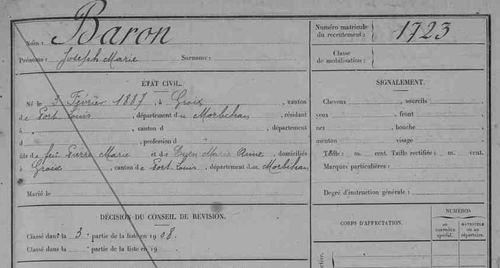 Nom : Baron
Prénoms : Joseph Marie Surnoms :
Numéro matricule du recrutement : 1723
Classe de mobilisation :
ÉTAT CIVIL.
Né le 3 Février 1887, à Groix, canton
de Port Louis, département du Morbihan, résidant
à , canton d , département
d , profession d
fils de feu Pierre Marie et de Marie , domiciliés
à Groix, canton de Port Louis, département du Morbihan.
Marié le
DÉCISION DU CONSEIL DE REVISION.
Classé dans la 3e partie de la liste en 1908.
Classé dans la partie de la liste en 19
SIGNALEMENT.
Cheveux , sourcils
yeux , front
nez , bouche
menton , visage
Taille : m. cent. Taille rectifiée : m. cent.
Marques particulières :
Degré d'instruction générale :
CORPS D'AFFECTATION.
NUMÉRO
au contrôle spécial.
MATRICULE ou au répertoire.